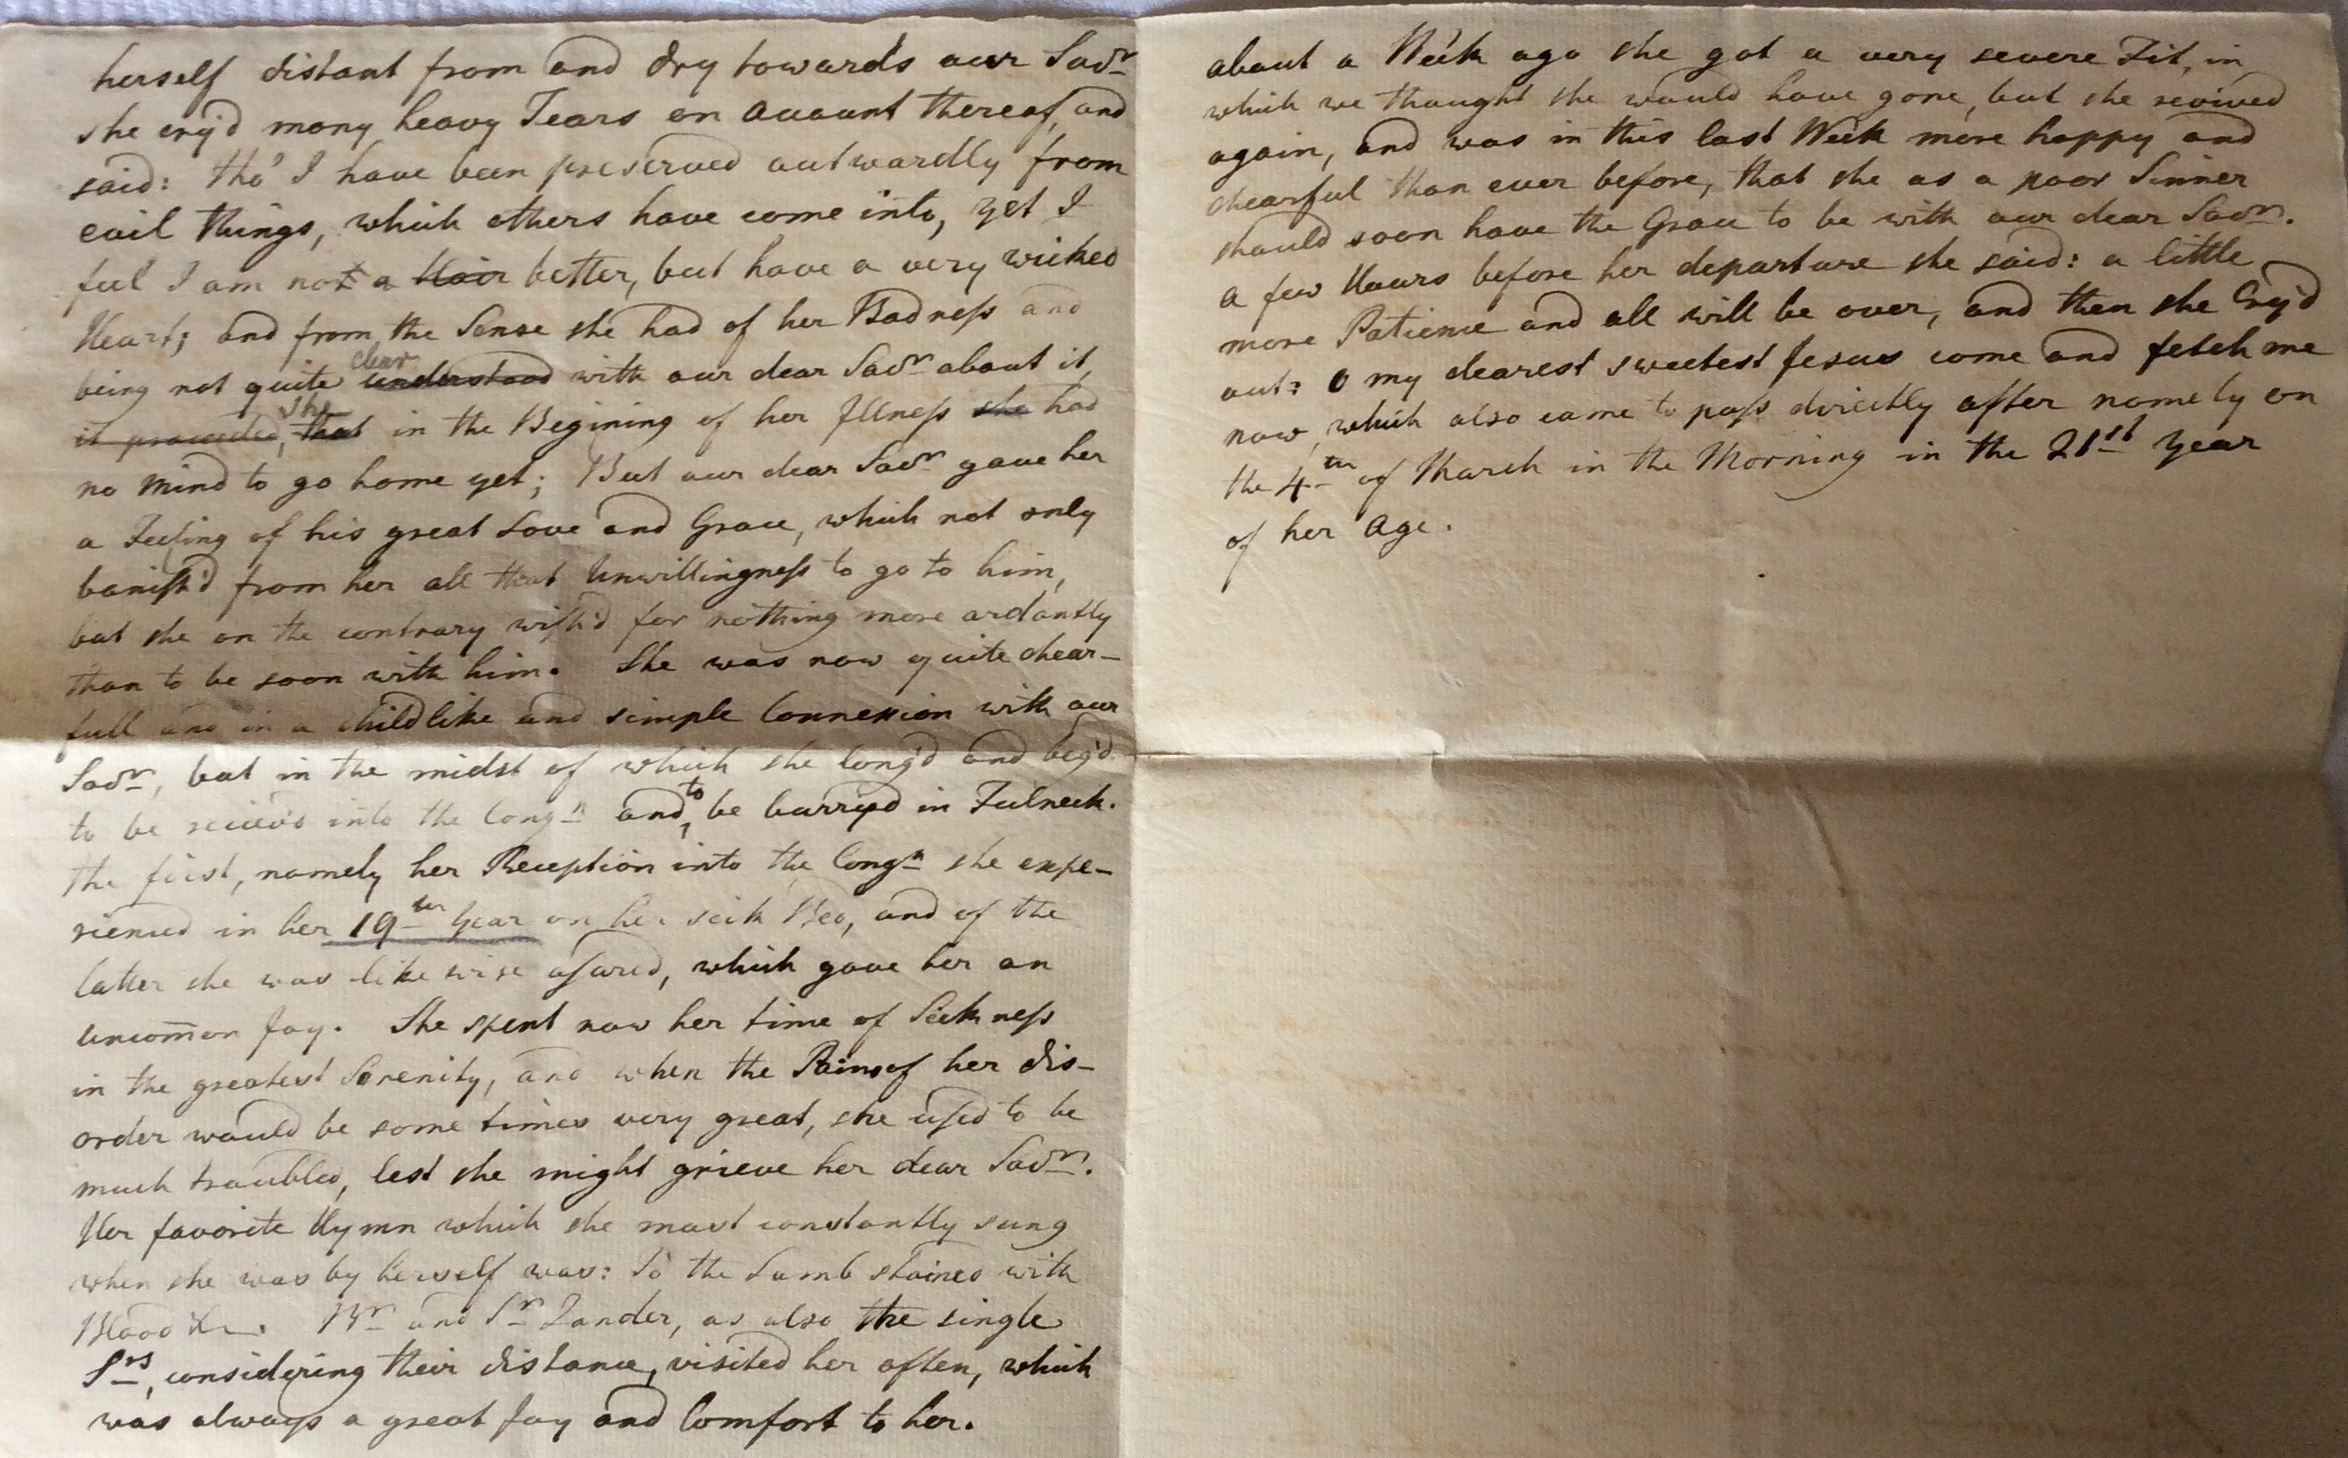 herself distant from and dry towards our Savr
she cry'd many heavy Tears on Account thereof, and
said: tho' I have been preserved outwardly from
evil things, which others have come into, yet I
feel I am not a Hair better, but have a very wicked
Heart; and from the Sense she had of her Badness and
being not quite clear understood with our dear Savr about it,
it proceeded, she that in the Begining of her Illness she had
no mind to go home yet; But our dear Savr gave her
a Feeling of his great Love and Grace, which not only
banish'd from her all that Unwillingness to go to him,
but she on the contrary wish'd for nothing more ardantly
than to be soon with him. She was now quite chear-
full and in a childlike and simple Connexion with our
Savr, but in the midst of which she long'd and beg'd
to be reciev'd into the Congn and to be burryed in Fulneck.
the first, namely her Reception into the Congn she expe-
rienced in her 19th Year on her sick Bed, and of the
latter she was likewise assured, which gave her an
uncomon Joy. She spent now her time of Sickness
in the greatest Serenity, and when the Pains of her dis-
order would be some times very great, she used to be
much troubled, lest she might grieve her dear Savr.
Her favorite Hymn which she most constantly sung
when she was by herself was: To the Lamb stained with
Blood &c. Br and Sr Zander, as also the single
Srs, considering their distance, visited her often, which
was always a great Joy and Comfort to her.
about a Week ago she got a very severe Fit, in
which we thought she would have gone, but she revived
again, and was in this last Week more happy and
chearful than ever before, that she as a poor Sinner
should soon have the Grace to be with our dear Savr.
a few Hours before her departure she said: a little
more Patience and all will be over, and then she Cry'd
out: O my dearest sweetest Jesus come and fetch me
now, which also came to pass directly after namely on
the 4th of March in the Morning in the 21st Year
of her Age.